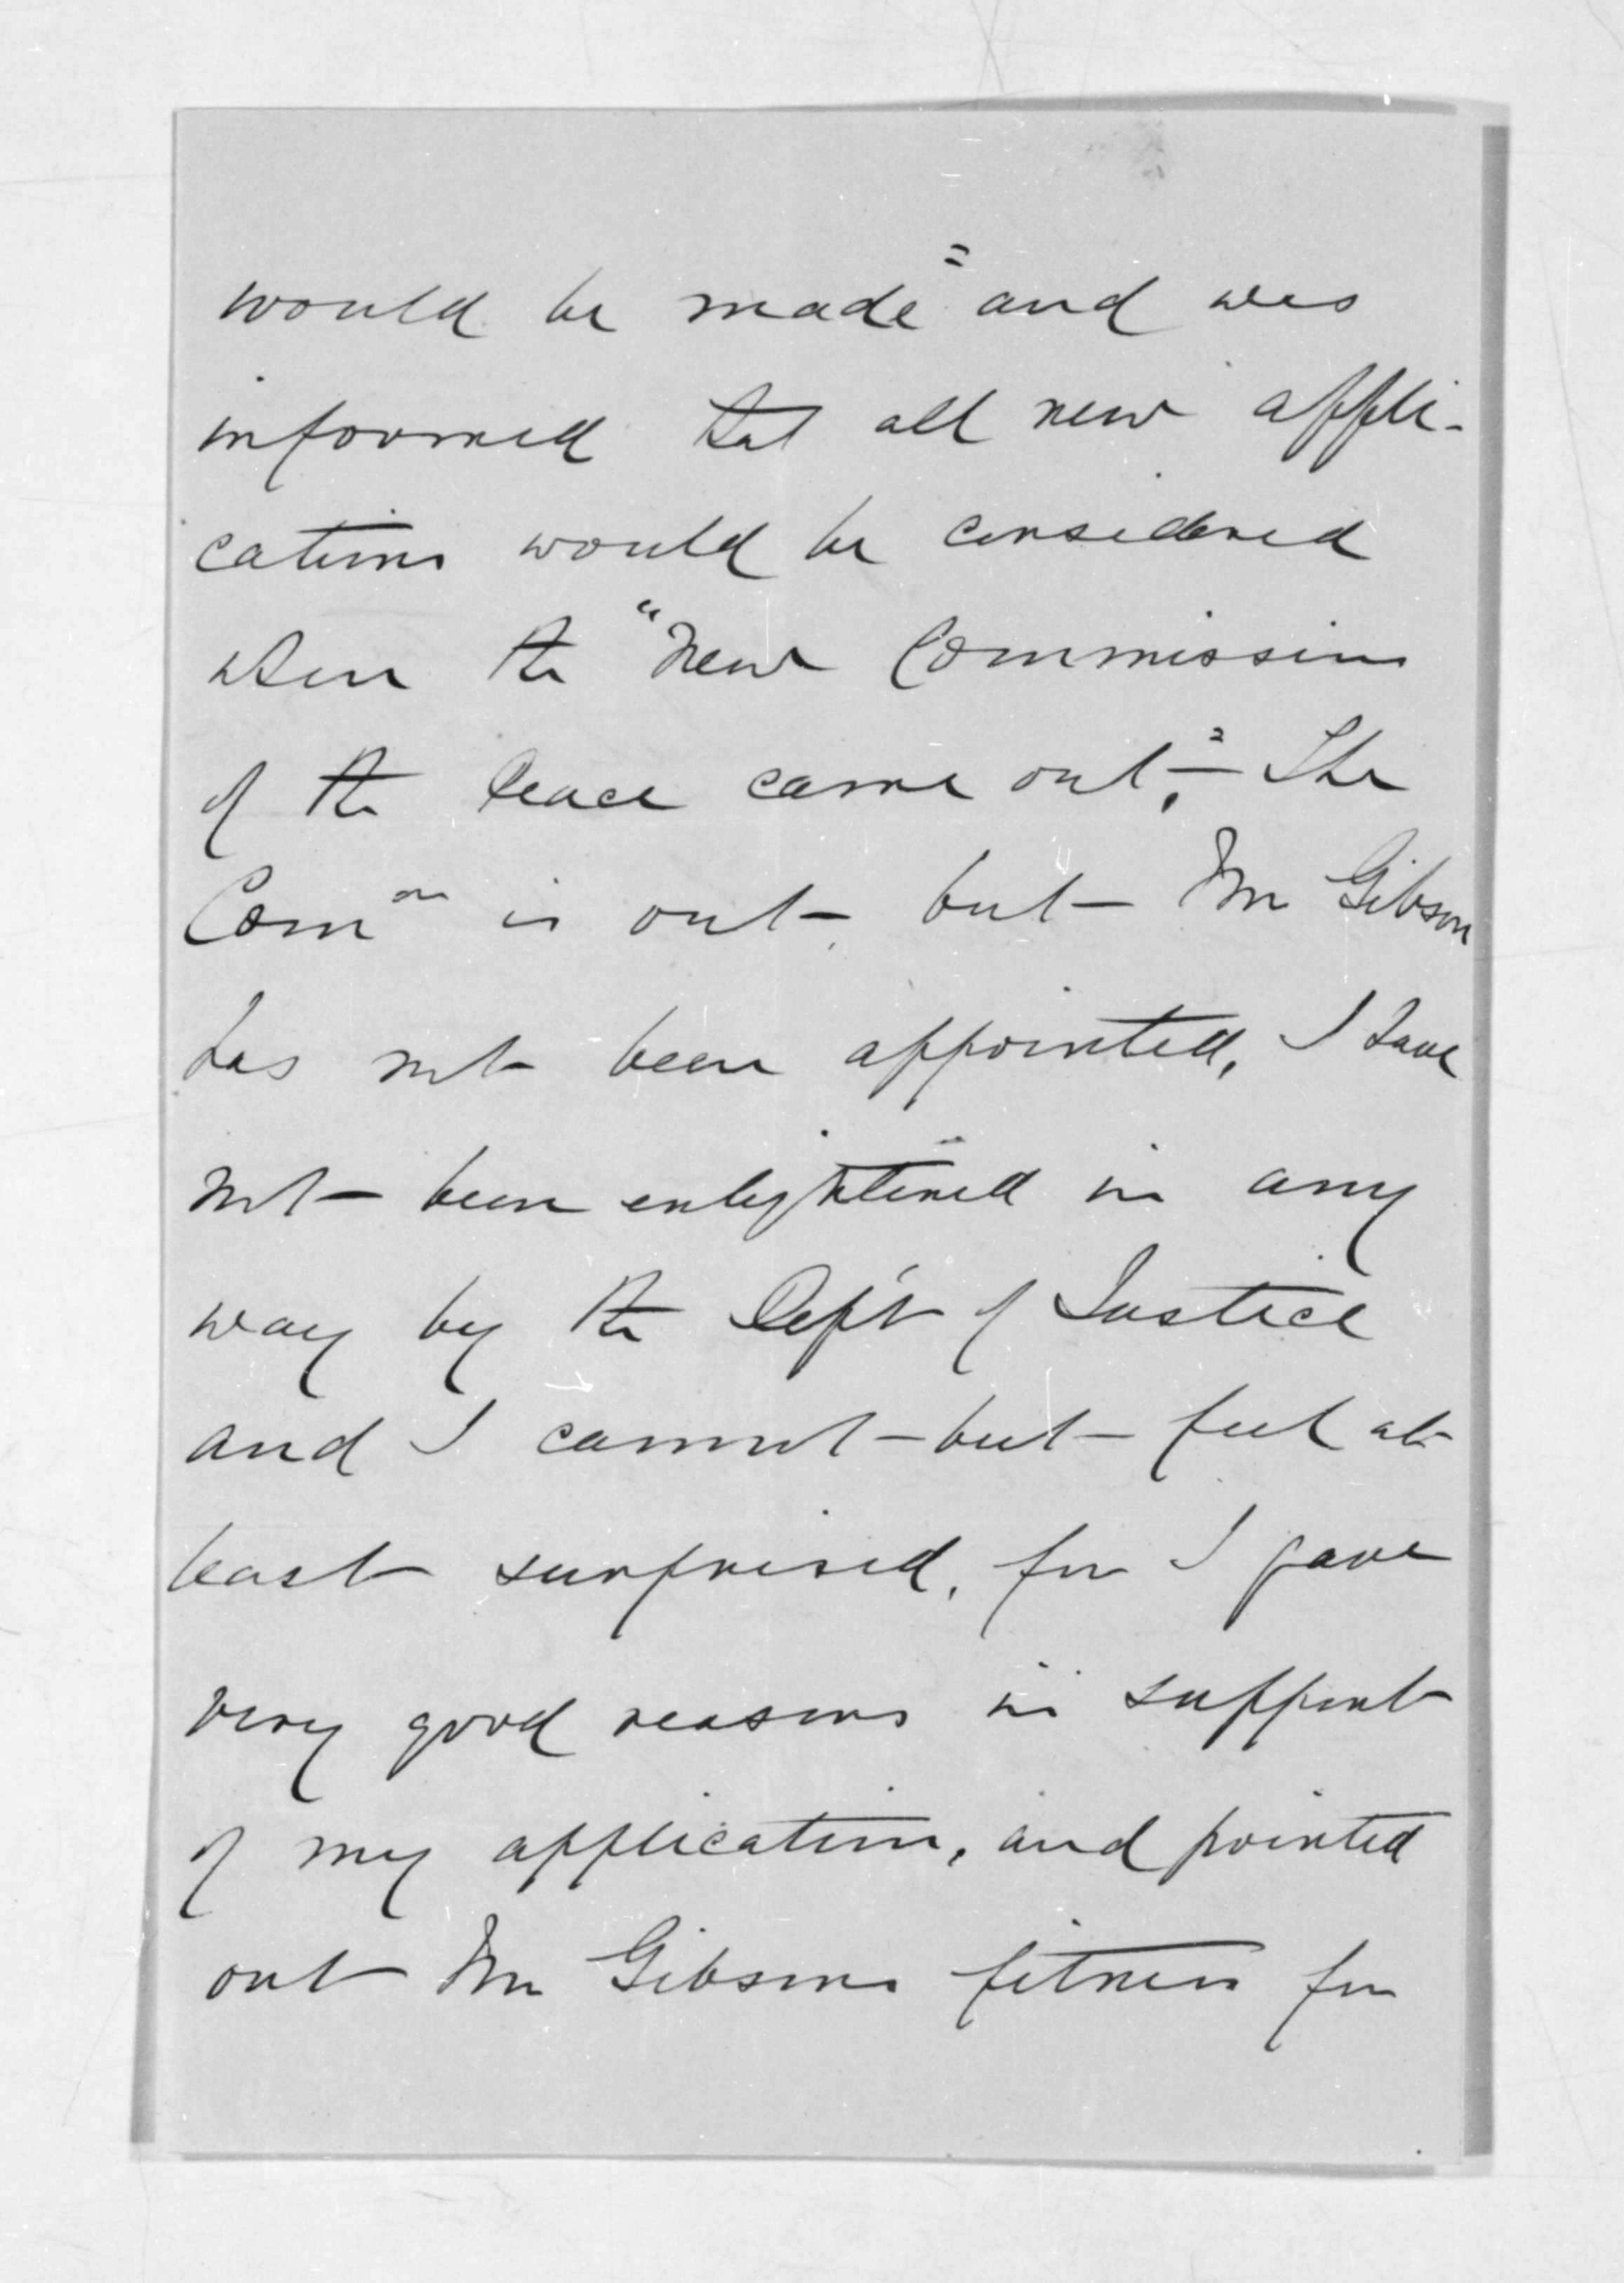 would be made" and was
informed that all new appli-
cations would be considered
when the "New Commission
of the Peace came out," - The
Comon is out but Mr Gibson
has not been appointed, I have
not been enlightened in any
way by the Dep't of Justice
and I cannot but feel at
least surprised, for I gave
very good reasons in support
of my application, and pointed
out Mr Gibsons fitness for